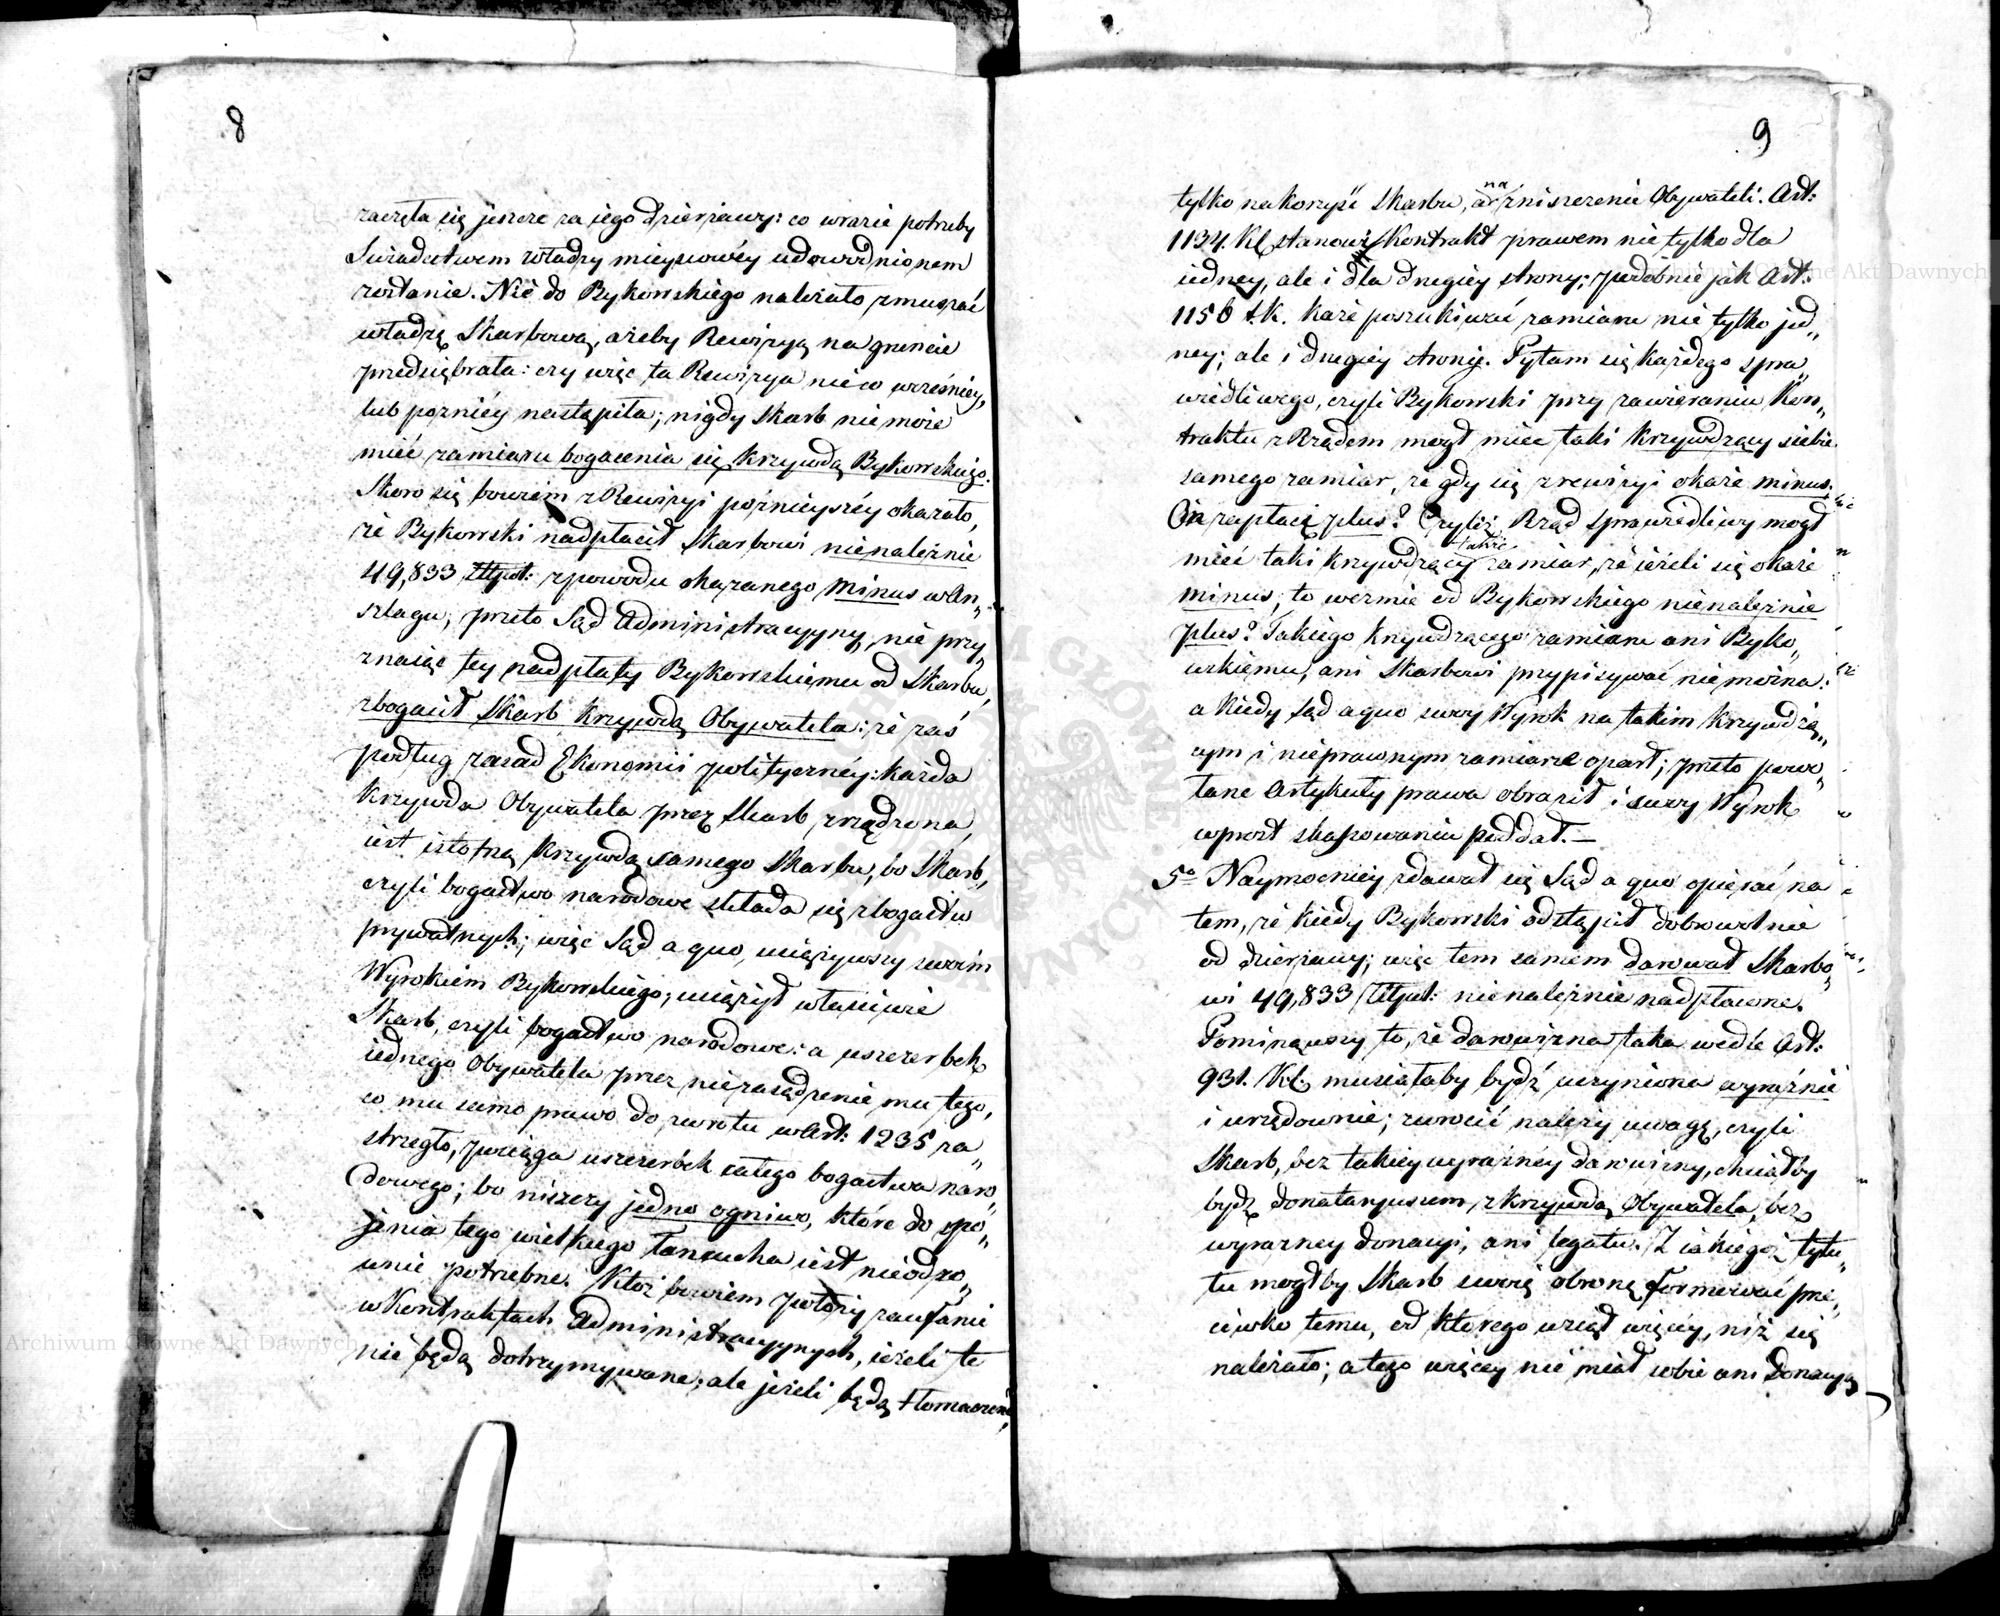 8
zaczęła się jeszcze za jego dzierżawy: co wrazie potrzeby
Swiadectwem władzy mieyscowéy udowodnionem
zostanie. Nie do Bykowskiego należało zmuszać
władzę Skarbową, ażeby Rewizyą na gruncie
przedsiębrała: czy więc ta Rewizya nieco wcześniéy,
lub pozniéy nastąpiła; nigdy Skarb nie może
mieć zamiaru bogacenia się krzywdą Bykowskiego.
Skoro się bowiem z Rewizyi poźnieyszéy okazało,
że Bykowski nadpłacił Skarbowi nienależnie
49,833 Złłpol: zpowodu okazanego minus w An„
szlagu; przeto Sąd Administracyyny, nie przy„
znaiąc tey nadpłaty Bykowskiemu od Skarbu,
zbogacił Skarb krzywdą Obywatela: że zaś
podług zasad Ekonomii polityczney: każda
krzywda Obywatela przez Skarb zrządzona,
iest istotną krzywdą samego Skarbu, bo Skarb,
czyli bogactwo narodowe składa się z bogactw
prywatnych; więc Sąd a quo, uciążywszy swoim
Wyrokiem Bykowskiego, uciążył właściwie
Skarb, czyli bogactwo narodowe: a uszczerbek
iednego Obywatela przez niezasądzenie mu tego,
co mu samo prawo do zwrotu w Art: 1235 za„
strzegło, pociąga uszczerbek całego bogactwa naro„
dowego; bo niszczy jedno ogniwo, które do spo„
jenia tego wielkiego łancucha iest nieodzo„
wnie potrzebne. Któż bowiem położy zaufanie
w Kontraktach Administracyynych, ieżeli te
nie będą dotrzymywane, ale jeżeli będą tłomaczone
9
tylko na korzyść Skarbu, a na zniszczenie Obywateli. Art:
1134. KC stanowi Kontrakt prawem nie tylko dla
iedney, ale i dla drugiey strony; podobnie jak Art:
1156 t.K. każe poszukiwać zamiaru nie tylko jed„
ney; ale i drugiey stronie. Pytam się każdego spra„
wiedliwego, czyli Bykowski przy zawieraniu Kon„
traktu z Rządem mogł mieć taki krzywdzący siebie
samego zamiar, że gdy się z rewizyi okaże minus,
On zapłaci plus? Czyliż Rząd sprawiedliwy mogł
mieć taki krzywdzący także zamiar, że ieżeli się okaże
minus, to weźmie od Bykowskiego nienależnie
plus? Takiego krzywdzącego zamiaru ani Byko„
wskiemu, ani Skarbowi przypisywać nie można:
a kiedy Sąd a quo swoy Wyrok na takim krzywdzą„
cym i nieprawnym zamiarze oparł; przeto powo„
łane Artykuły prawa obraził i swoy Wyrok
wprost skassowaniu poddał. —
5o Naymocniey zdawał się Sąd a quo opierać na
tem, że kiedy Bykowski odstąpił dobrowolnie
od dzierżawy; więc tem samem darował Skarbo„
wi 49,833 Złłpol: nienależnie nadpłacone.
Pominąwszy to, że darowizna taka wedle Art:
931. KC. musiałaby bydź uczyniona wyraźnie
i urzędownie; zwrócić należy uwagę, czyli
Skarb, bez takiey wyraźnéy darowizny, chciałby
bydź donataryuszem z krzywdą Obywatela, bez
wyraźney donacyi, ani legatu. Z iakiegoż tytu„
łu mogłby Skarb swoię obronę formować prze„
ciwko temu, od którego wziął więcéy, niż się
należało; a tego więcey nie miał sobie ani donacyą